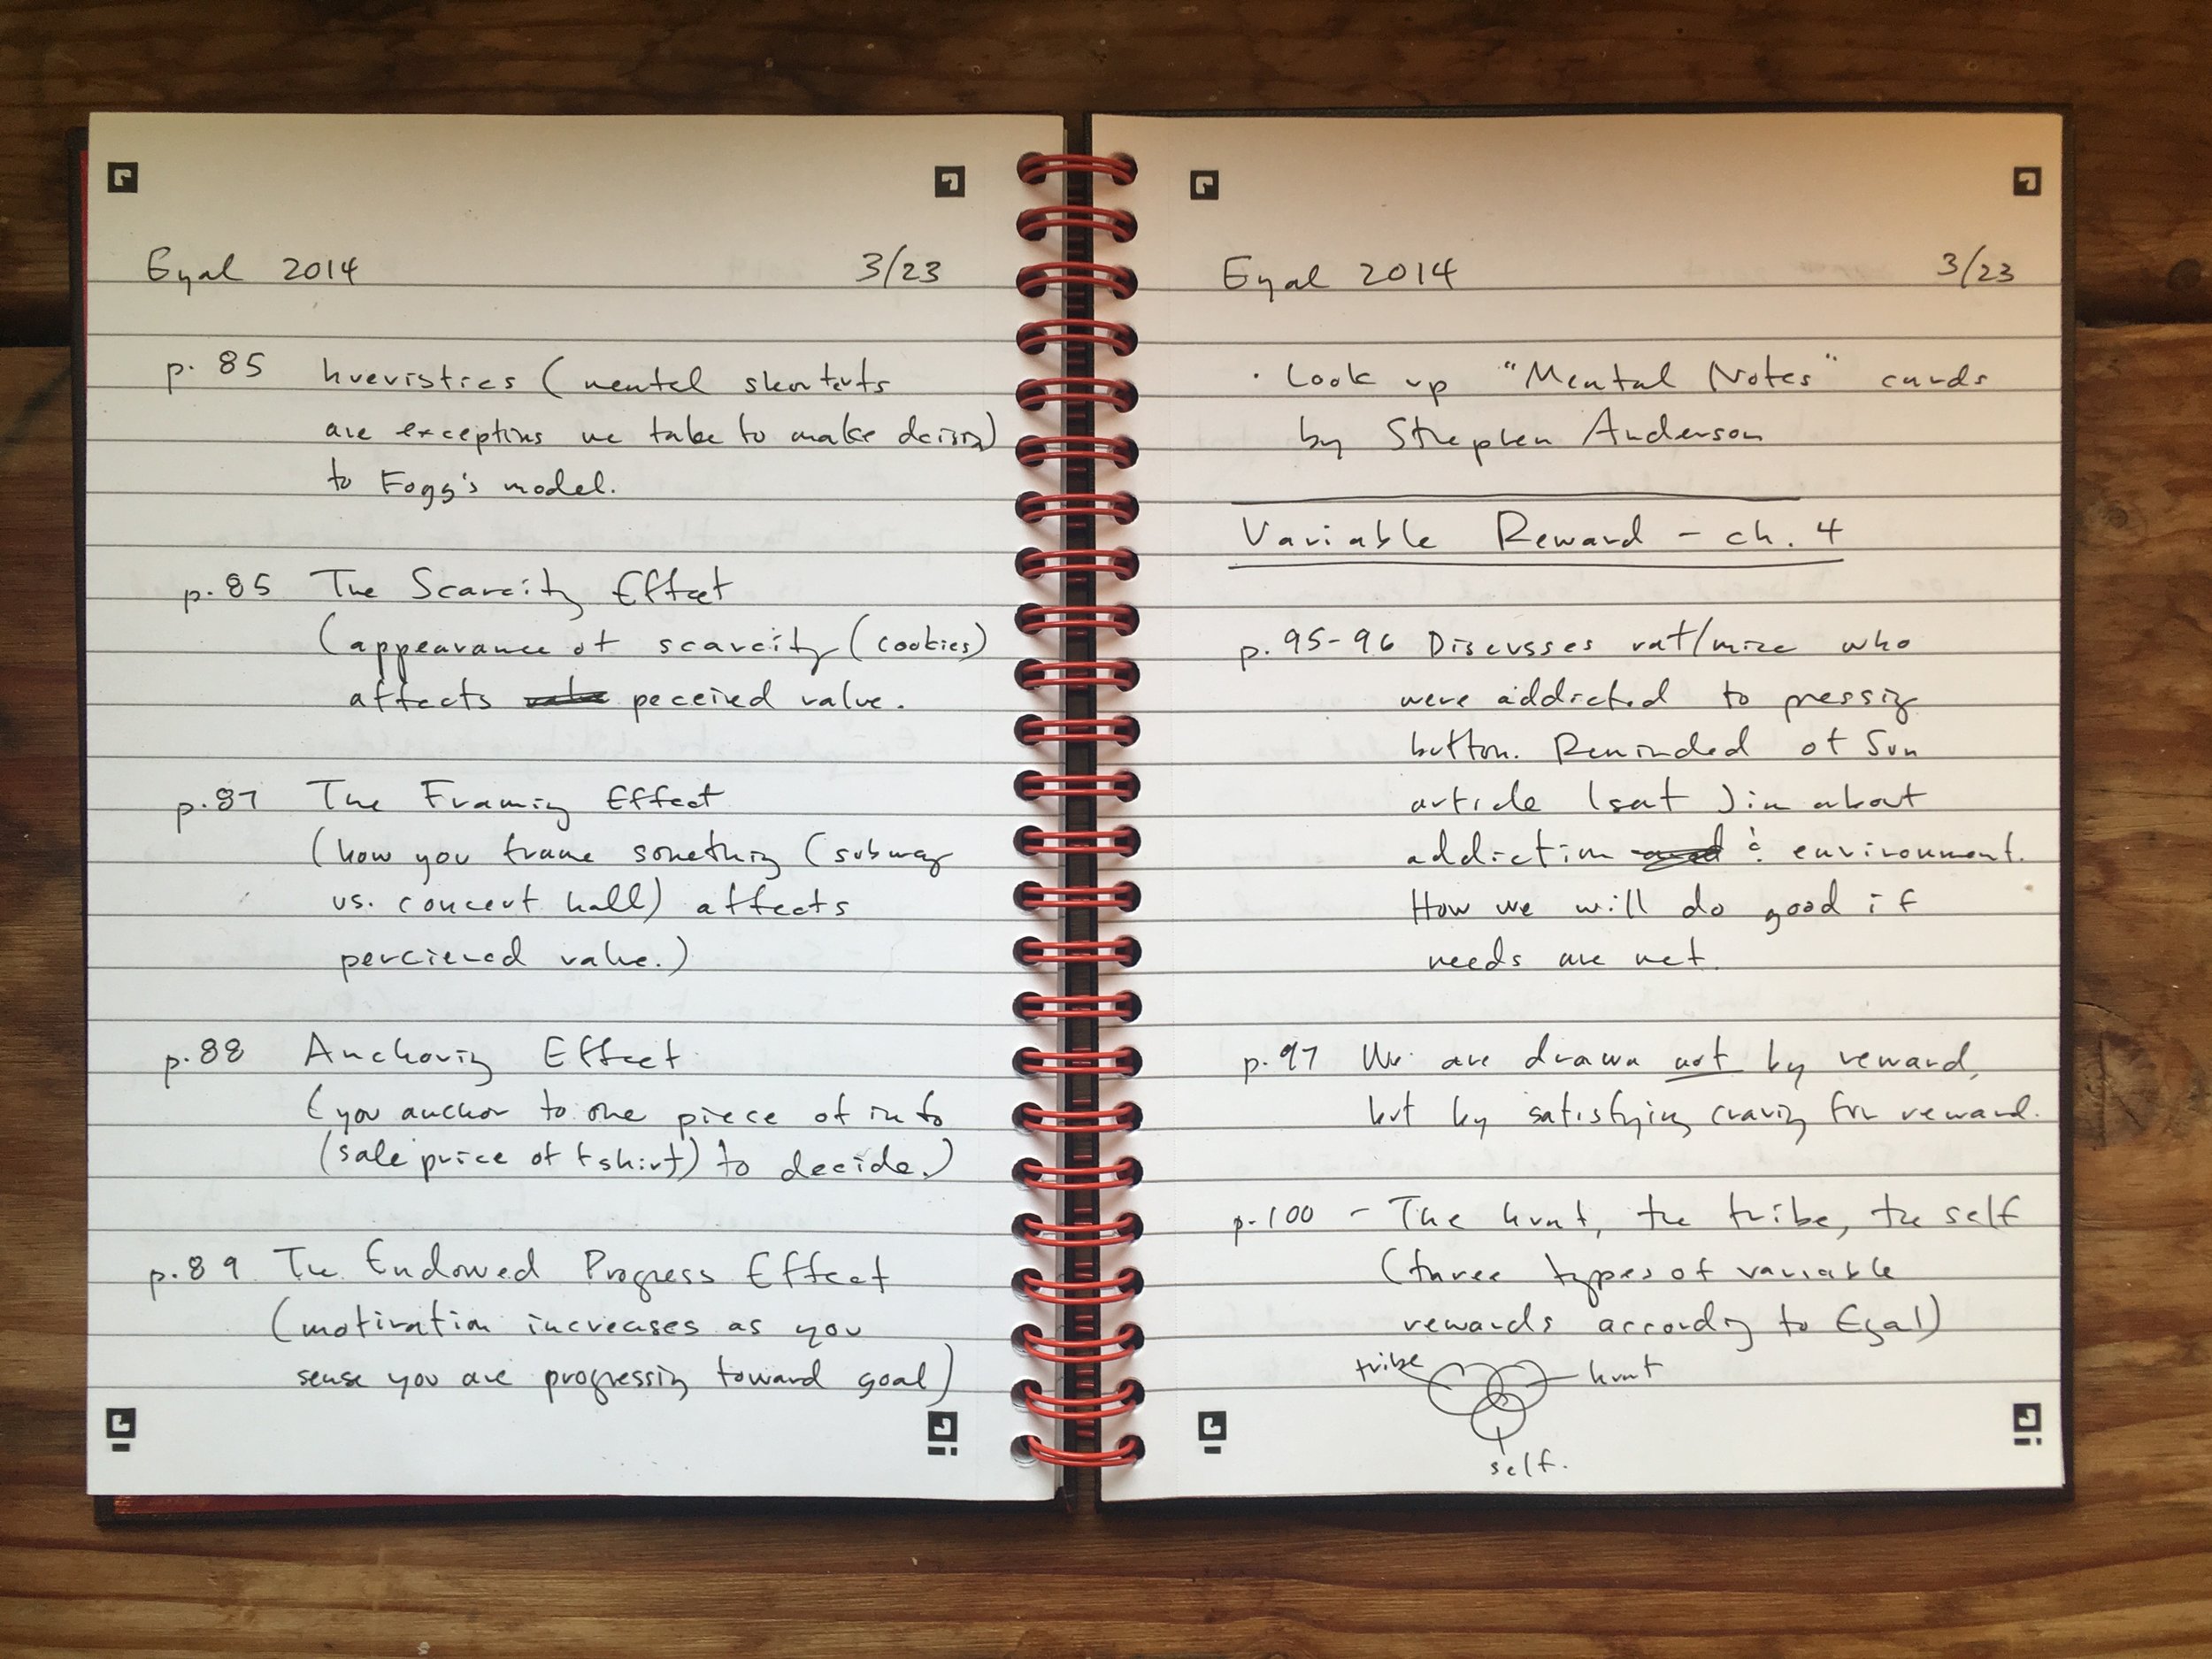 Eyal 2014 3/23
p. 85 hueristics (mental shortcuts
are exceptions we take to make decision)
to Fogg's model.
p. 85 The Scarcity Effect
(appearance of scarcity (cookies)
affects peceived value.
p. 87 The Framing Effect
(how you frame something (subway
vs. concert hall) affects
percieved value.)
p. 88 Anchoring Effect
(you anchor to one piece of info
(sale price of t shirt) to decide.)
p. 89 The Endowed Progress Effect
(motivation increases as you
sense you are progressing toward goal)
Eyal 2014 3/23
· Look up "Mental Notes" cards
by Stephen Anderson
Variable Reward - ch. 4
p. 95-96 Discusses rat/mice who
were addicted to pressing
button. Reminded of Sun
article (sat ) in about
addiction & environment.
How we will do good if
needs are met.
p. 97 We are drawn not by reward,
but by satisfying craving for reward.
p. 100 - The hunt, the tribe, the self
(three types of variable
rewards according to Eyal)
tribe hunt
self.